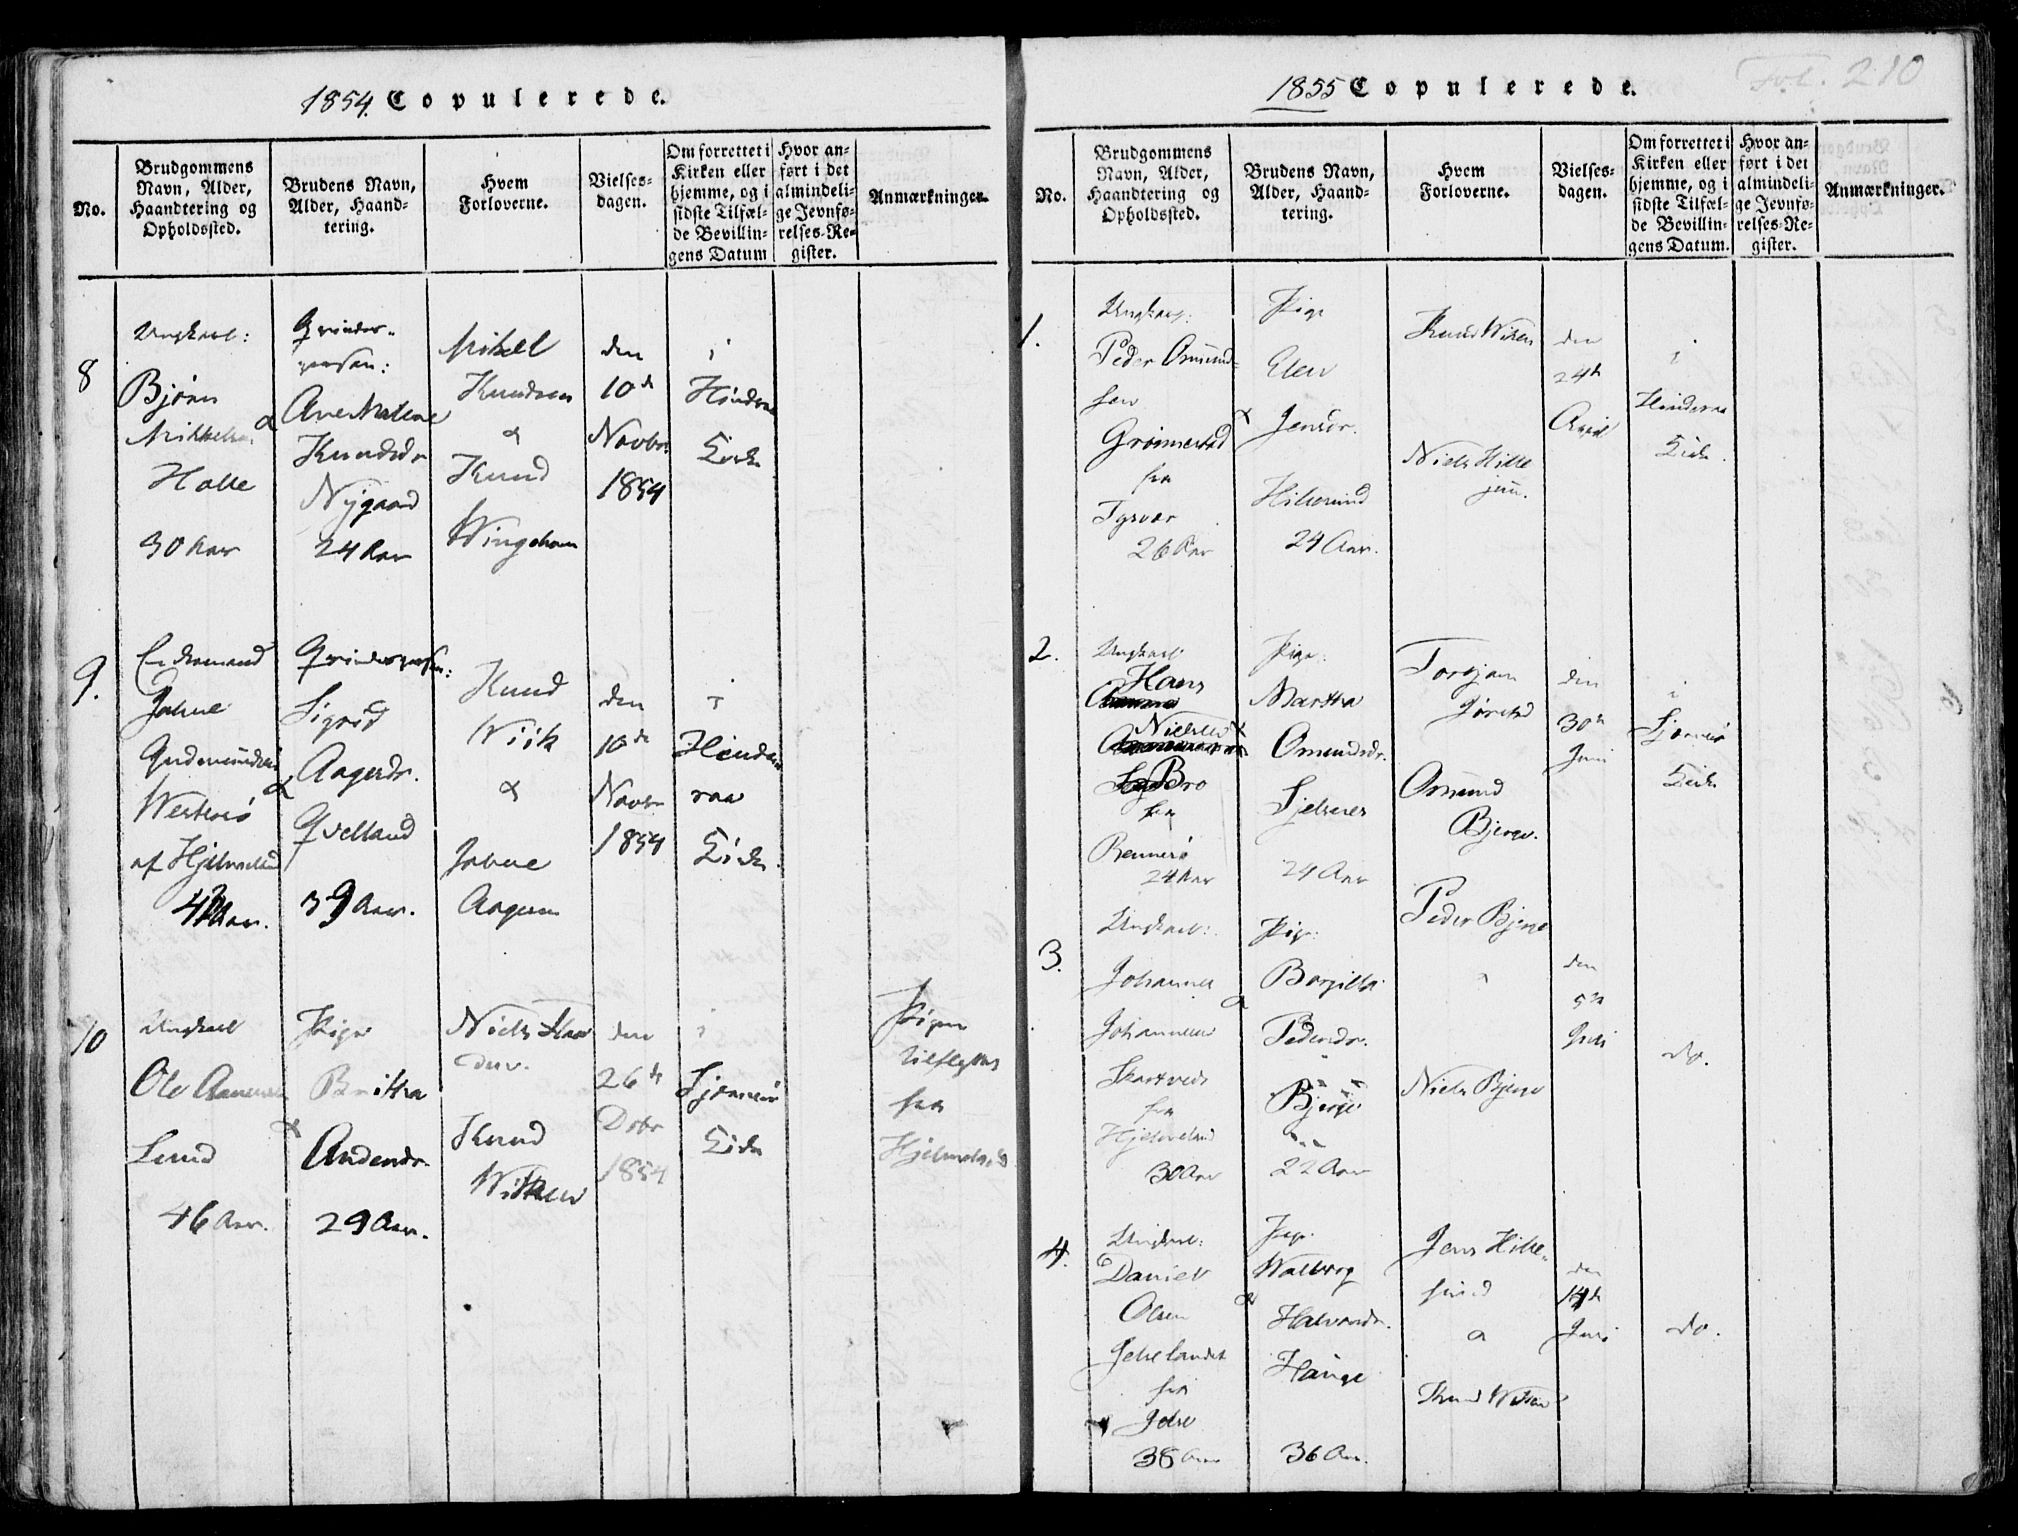 1854. Copulerede.
No.
Brudgommens
Navn, Alder,
Haandtering og
Opholdssted.
Brudens Navn,
Alder, Haand-
tering.
Hvem
Forloverne.
Vielses-
dagen.
Om forrettet i
Kirken eller
hjemme, og i
sidste Tilfæl-
de Bevillin-
gens Datum
Hvor an-
ført i det
almindeli-
ge Jevnfø-
relses-Re-
gister.
Anmærkninger.
8
Ungkarl:
Bjørn
Mikkels.
Halle
30 Aar
&
Qvindes-
person:
Ane Malene
Knudsdr
Nygaard
24 Aar
Mikel
Knudsen
&
Knud
den
10de
Novbr
1854
i
Kirke
9.
Enkemand
Johne
Gudmunds
Westerø
af Hjelmeland
Aar.
&
Qvindesperson:
Sigrid
Aagesdr.
Qvelland
39 Aar.
Knud
Wiik
&
Johne
Aagesen
den
10de
Novbr
1854
i
Hinde
raa
Kirke.
10
Ungkarl
Ole
Lund
46 Aar.
&
Pige
Brittha
Andersdr.
29 Aar.
Niels
Knud
den
26de
Dcbr
1854
i
Sjernerø
Kirke
Pigen
tilflyttet
fra
Hjelmeland
1855 Copulerede.
Fol. 210
No.
Brudgommens
Navn, Alder,
Haandtering og
Opholdssted.
Brudens Navn,
Alder, Haand-
tering.
Hvem
Forloverne.
Vielses-
dagen.
Om forrettet i
Kirken eller
hjemme, og i
sidste Tilfæl-
de Bevillin-
gens Datum.
Hvor an-
ført i det
almindeli-
ge Jevnfø-
relses-Re-
gister.
Anmærkninger.
1.
Ungkarl:
Peder Omund-
sen
Grønnestad
fra
Tysvær
26 Aar
&
Pige
Elen
Jensdr.
Hillesund
24 Aar.
Niels Hille
jun.
den
24de
April
i
Hinderaa
Kirke.
2.
Ungkarl
Hans
Nielsen
Bro
fra
Rennesø
24 Aar
&
Pige:
Martha
Omundsdr.
24 Aar
Omund
Bjerge.
den
30de
Juni
i
Sjernerø
Kirke
3.
Ungkarl:
Johannes
Johannesen
Skartveds
fra
Hjelmeland
30 Aar
&
Pige:
Borgilla
Pedersdr.
Bjerge
22 Aar
Peder Bjerge
Niels Bjerge
den
5te
do.
4.
Ungkarl:
Daniel
Olsen
fra
Jelse
38 Aar
&
Pige.
Walborg
Halvorsdr.
Hauge
36 Aar.
Jens Hille-
sund
&
den
14de
do.